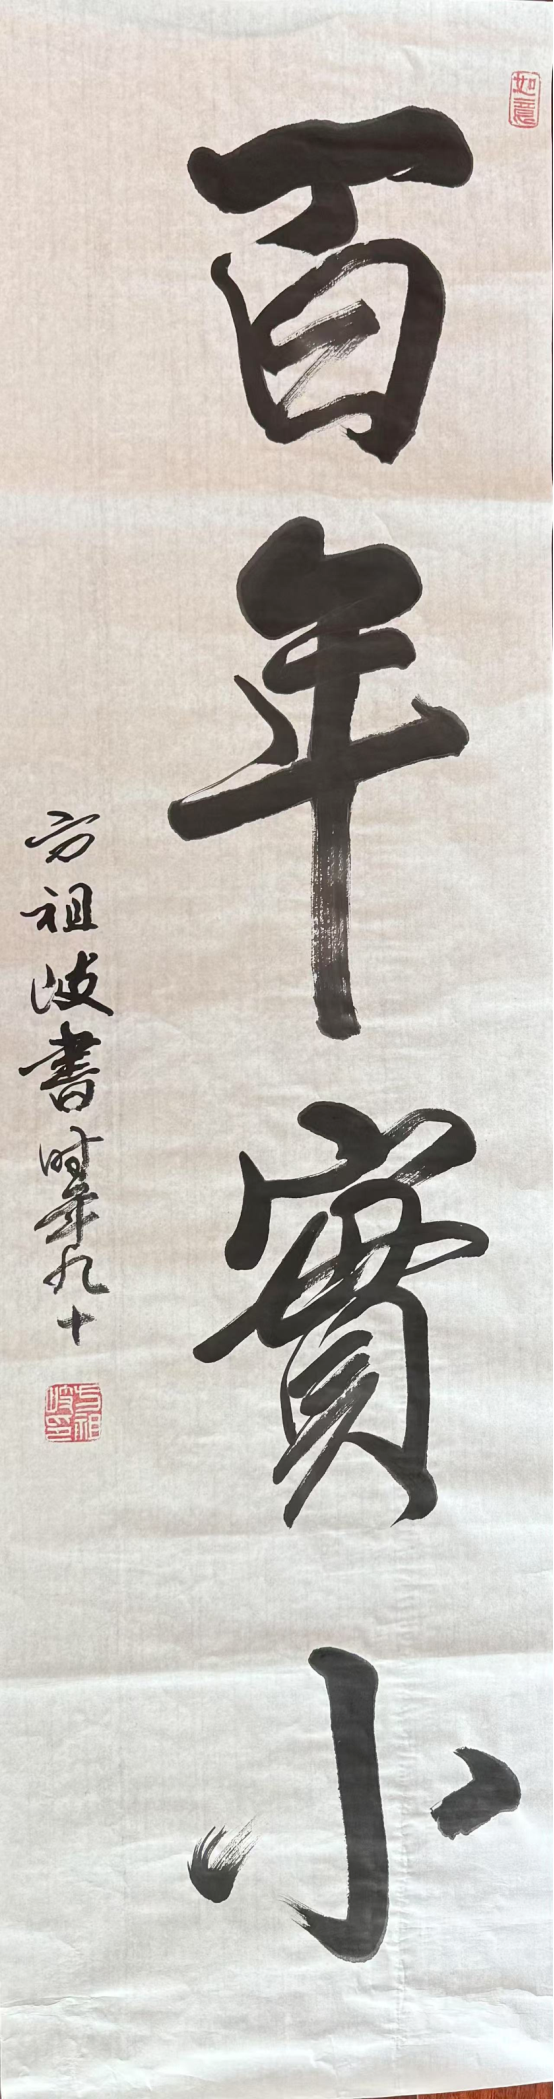 如意
百年實小
方祖岐書时年九十
方祖岐印